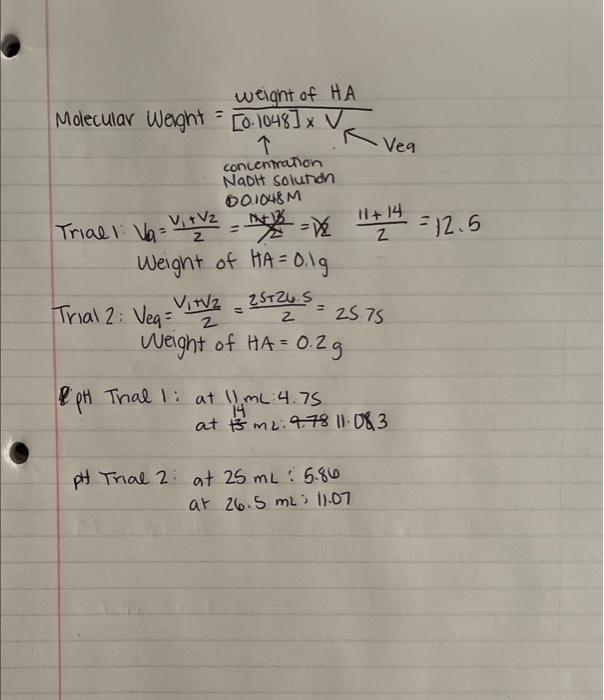 Molecular Weight = weight of HA / [0.1048] x V
↑ ← Veq
concentration
NaOH solution
0.1048 M
Trial 1: Vq = V1+V2 / 2 = 11+13 / 2 = 12 11+14 / 2 = 12.5
Weight of HA = 0.1g
Trial 2: Veq = V1+V2 / 2 = 25+26.5 / 2 = 25.75
Weight of HA = 0.2g
pH Trial 1: at 11 mL: 4.75
at 13 14 mL: 9.78 11.083
pH Trial 2: at 25 mL: 5.86
at 26.5 mL: 11.07